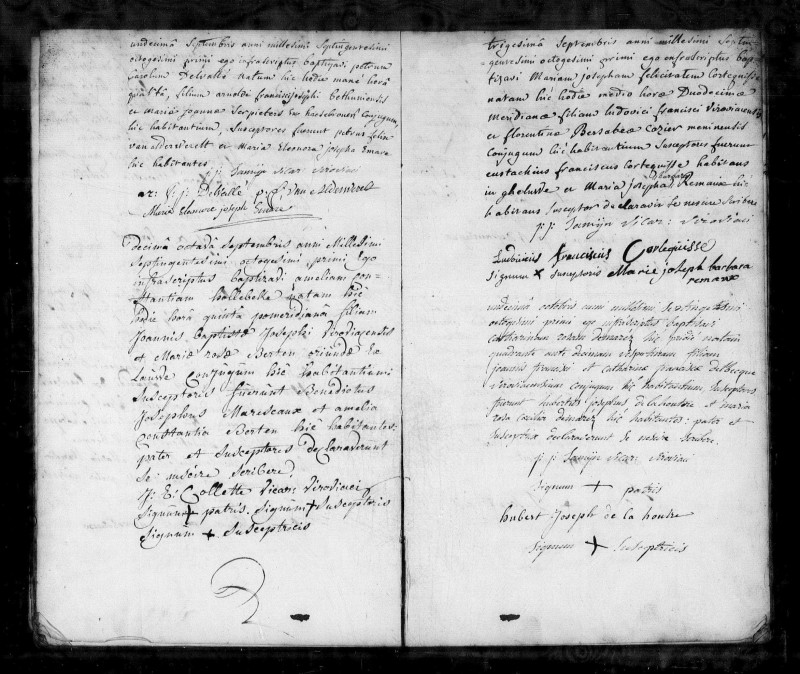 undecimâ Septembris anni millesimi Septingentesimi
octogesimi primi ego infrascriptus baptizavi petrum
Carolum Delvallé natum hic hodie mane horâ
quartâ, filium arnoldi francisci josephi bethuniensis
et Mariæ Joannæ Serpieters Ex haesebrouck Conjugum
hic habitantium, Susceptores fuerunt petrus felix
vanalderwerelt et Maria Eleonora Josepha Emare
hic habitantes
j: j: Samijn Vicar: viroviaci
ar: f: j: Delvallé p: f: van Alderwerelt
Marie Eleonore joseph Emaré
decimâ octavâ Septembris anni Millesimi
Septingentesimi octogesimi primi Ego
infrascriptus baptizavi ameliam Con-
stantiam hallebeke natam hic
hodie horâ quintâ pomeridianâ filiam
Joannis baptistæ Josephi Viroviacensis
et Mariæ rosæ Berten oriundæ Ex
Lauwe Conjugum hic habitantium
Susceptores fuerunt Benedictus
Josephus Marescaux et amelia
Constantia Berten hic habitantes:
pater et Susceptores declaraverunt
Se nescire Scribere.
J: E: Collette Vicar: Viroviaci
Signum + patris. Signum + Susceptoris
Signum + Susceptricis
trigesimâ Septembris anni millesimi Septin-
gentesimi octogesimi primi ego infrascriptus bap-
tizavi Mariam josepham felicitatem Cortequisse
natam hic hodie medio horæ Duodecimæ
Meridianæ filiam ludovici francisci Viroviacensis
et florentinæ Bersabeæ Cozier meninensis
Conjugum hic habitantium Susceptores fuerunt
eustachius franciscus Cortequisse habitans
in ghelvwe et Maria josepha barbara Remaux hic
habitans Susceptor declaravit Se nescire Scribere
j: j: Samijn Vicar: Viroviaci
Ludovicus Franciscus Cortequisse
Signum + Susceptoris Marie joseph barbara
remaux
undecimâ octobris anni millesimi Septingentesimi
octogesimi primi ego infrascriptus baptizavi
Catharinam rosam demarez hic pridie natam
quadrante ante octavam vespertinam filiam
joannis francisci et catharinæ franciscæ delbecque
viroviacensium conjugum hic habitantium, Susceptores
fuerunt hubertus josephus de la houtre et maria
rosa demarez hic habitantes: pater et
Susceptrix declaraverunt Se nescire Scribere.
j: j: Samijn Vicar: Viroviaci
Signum + patris
hubert Joseph de la houtre
Signum + Susceptricis